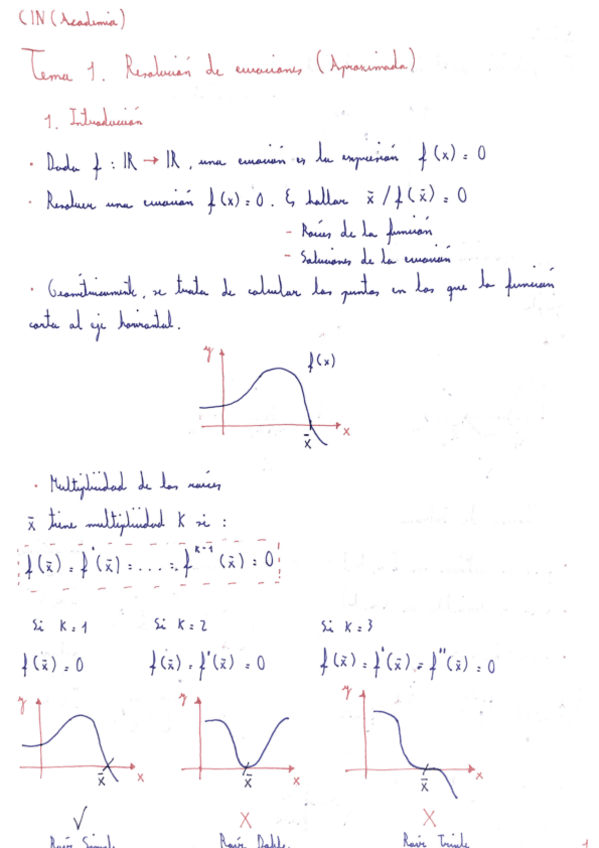 CIN (Academia)
Tema 1. Resolución de ecuaciones (Aproximada)
1. Introducción
· Dada f : IR → IR, una ecuación es la expresión f(x) = 0
· Resolver una ecuación f(x) = 0. Es hallar x̄ / f(x̄) = 0
- Raíces de la función
- Soluciones de la ecuación
· Geométricamente, se trata de calcular los puntos en los que la función
corta al eje horizontal.
y f(x)
x̄ x
· Multiplicidad de las raíces
x̄ tiene multiplicidad K si :
f(x̄) = f'(x̄) = .... = f^{K-1}(x̄) = 0
Si K=1 Si K=2 Si K=3
f(x̄) = 0 f(x̄) = f'(x̄) = 0 f(x̄) = f'(x̄) = f''(x̄) = 0
y y y
x̄ x x̄ x x̄ x
✓ X X
Raíz Simple Raíz Doble. Raíz Triple
1